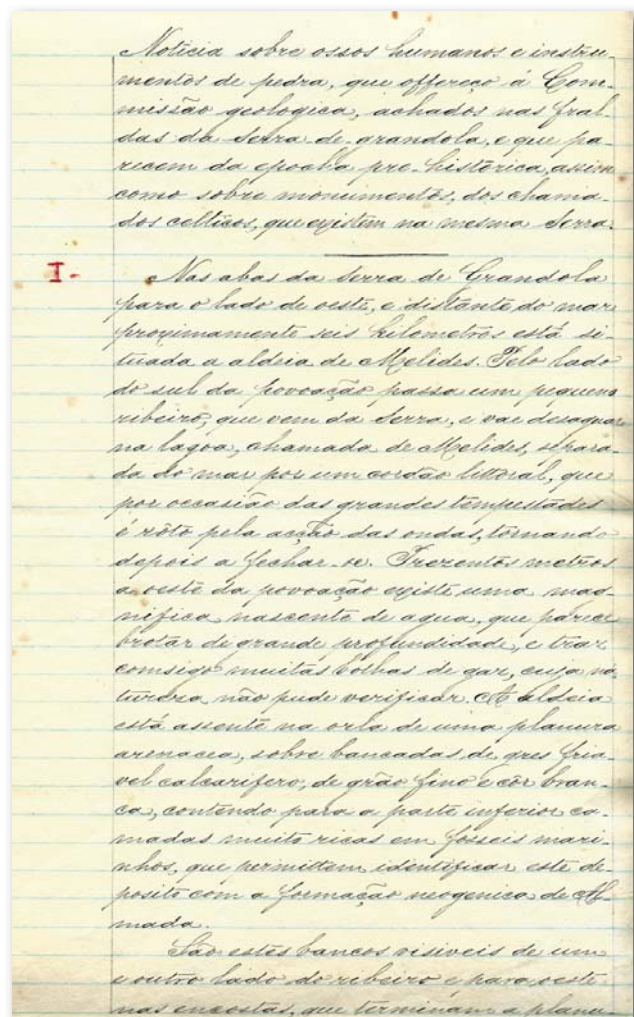 Noticia sobre ossos humanos e instru-
mentos de pedra, que offereço á Com-
missão geologica, achados nas fral-
das da Serra de grandola, e que pa-
recem da epocha pre-historica, assim
como sobre monumentos, dos chama-
dos celticos, que existem na mesma Serra.
I-
Nas abas da Serra de Grandola
para o lado de oeste, e distante do mar
proximamente seis kilometros está si-
tuada a aldeia de Melides. Pelo lado
do sul da povoação passa um pequeno
ribeiro, que vem da Serra, e vae desaguar
na lagoa, chamada de Melides, separa-
da do mar por um cordão littoral, que
por occasião das grandes tempestades
é rôto pela acção das ondas, tornando
depois a fechar-se. Trezentos metros
a oeste da povoação existe uma mag-
nifica nascente de agua, que parece
brotar de grande profundidade, e traz
comsigo muitas bolhas de gaz, cuja na-
tureza não pude verificar. A aldeia
está assente na orla de uma planura
arenacea, sobre bancadas de gres fria-
vel calcarifero, de grão fino e côr bran-
ca, contendo para a parte inferior ca-
madas muito ricas em fosseis mari-
nhos, que permittem identificar este de-
posito com a formação neogenica de Al-
mada.
São estes bancos visiveis de um
e outro lado do ribeiro e para oeste
nas encostas, que terminam a planu-